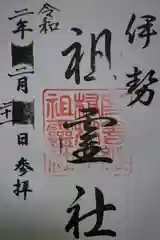 伊勢
祖霊社
令和
二年二月日参拝